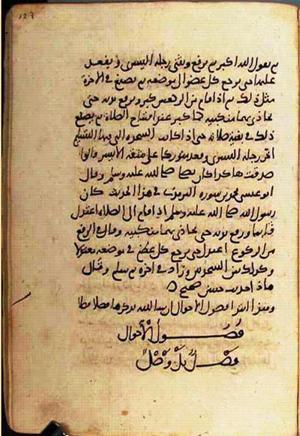 ثم يقول الله اكبر ثم يرفع ويثني رجله اليسرى ويقعد
عليها حتى يرجع كل عضو الى موضعه ثم يصنع في الاخرة
مثل ذلك ثم اذا قام من الركعتين كبر ورفع يديه حتى
يحاذي بهما منكبيه كما كبر عند افتتاح الصلاة ثم يصنع
ذلك في بقية صلاته حتى اذا كانت السجدة التي فيها التسليم
اخر رجله اليسرى وقعد متوركا على شقه الايسر قالوا
صدقت هكذا كان يصلي صلى الله عليه وسلم وقال
ابو عيسى محمد بن سورة الترمذي في هذا الحديث كان
رسول الله صلى الله عليه وسلم اذا قام الى الصلاة اعتدل
قايما ورفع يديه حتى يحاذي بهما منكبيه وقال في الرفع
من الركوع اعتدل حتى يرجع كل عظم في موضعه معتدلا
وكذلك بين السجدتين وزاد في اخره ثم سلم وقال
هذا حديث حسن صحيح
الاحوال ان شا الله
فصول الاحوال
فصل